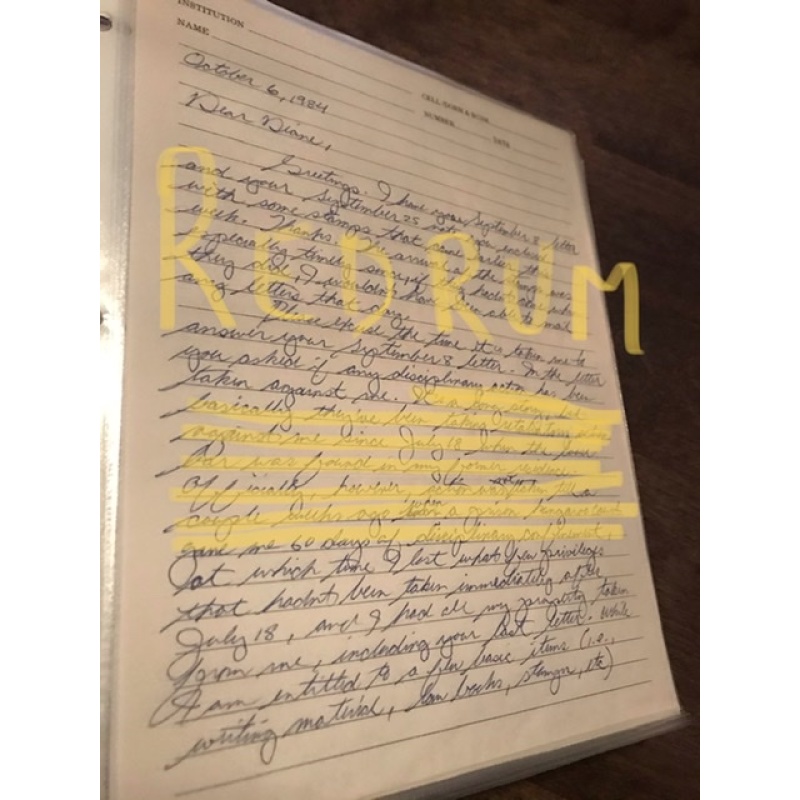 INSTITUTION
NAME
CELL HOUSE & ROOM
NUMBER DATE
October 6, 1984
Dear Diane,
Greetings. I have your September 8 letter
and your September 25 note you enclosed
with some stamps that came earlier this
week. Thanks. The arrival of the stamps was
especially timely since, if they hadn't come when
they did, I wouldn't have been able to mail
any letters that day.
Please excuse the time it is taken me to
answer your September 8 letter. In the letter
you asked if any disciplinary action has been
taken against me. It is a long story, but
basically they've been taking retaliatory
against me since July 18 when the
bar was found in my former residence.
Officially, however, action was taken till a
couple weeks ago when a prison kangaroo court
gave me 60 days of disciplinary confinement,
at which time I lost what few privileges
that hadn't been taken immediately after
July 18, and I had all my property taken
from me, including your last letter. While
I am entitled to a few basic items (i.e.,
writing material, law books, stamps, etc)
REDRUM